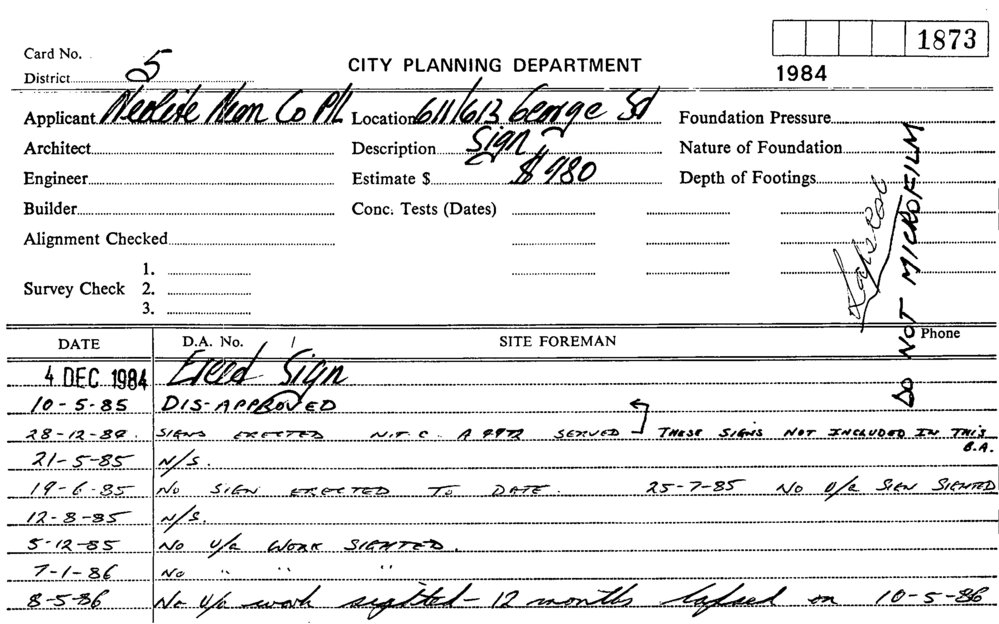 Card No.
1873
District 5
CITY PLANNING DEPARTMENT
1984
Applicant Neolite Neon Co P/L Location 611/613 George St Foundation Pressure
Architect Description Sign Nature of Foundation
Engineer Estimate $ $980 Depth of Footings
Builder Conc. Tests (Dates)
Alignment Checked
Survey Check 1.
2.
3.
Lapsed
DO NOT MICROFILM
DATE D.A. No. / SITE FOREMAN Phone
4 DEC 1984 Erect Sign
10-5-85 DIS-APPROVED
28-12-84. SIGNS ERECTED N.T.C. A 9972 SERVED THESE SIGNS NOT INCLUDED IN THIS B.A.
21-5-85 N/S.
19-6-85 NO SIGN ERECTED TO DATE. 25-7-85 NO U/A SIGN SIGHTED
12-8-85 N/S.
5-12-85 NO U/A WORK SIGHTED.
7-1-86 NO " " "
8-5-86 No U/A work sighted - 12 months lapsed on 10-5-86